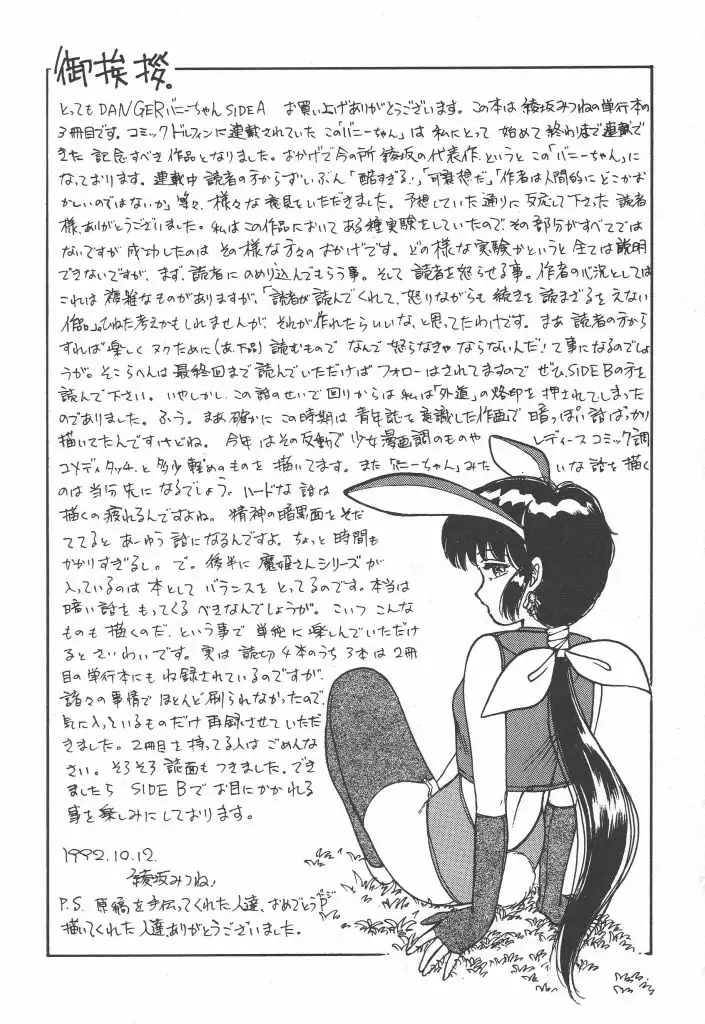 御挨拶。
とってもDANGERバニーちゃんSIDEA お買い上げありがとうございます。この本は綾坂みつねの単行本の
3冊目です。コミックドルフィンに連載されていたこの「バニーちゃん」は私にとって始めて終わりまで連載で
きた記念すべき作品となりました。おかげで今の所綾坂の代表作、というとこの「バニーちゃん」に
なっております。連載中読者の方からずいぶん「酷すぎる!」「可哀想だ」「作者は人間的にどこかお
かしいのではないか」等々、様々な意見をいただきました。予想していた通りに反応して下さった読者
様、ありがとうございました。私はこの作品においてある種実験をしていたので、その部分がすべてでは
ないですが成功したのはその様な方々のおかげです。どの様な実験かというと全ては説明
できないですが、まず、読者にのめり込んでもらう事。そして読者を怒らせる事。作者の心況としては
これは複雑なものがありますが、「読者が読んでくれて、怒りながらも続きを読まざるをえない
作品」。ひねた考えかもしれませんが、それが作れたらいいな、と思ってたわけです。まあ読者の方から
すれば楽しくヌクために(あ、下品)読むものでなんで怒らなきゃならないんだ!て事になるのでしょ
うが。そこらへんは最終回まで読んでいただけばフォローはされてますのでぜひ、SIDE Bの方を
読んで下さい。いやしかし、この話のせいで回りからは私は「外道」の烙印を押されてしまった
のでありました。ふう。まあ確かにこの時期は青年誌を意識した作画で暗っぽい話ばっかり
描いてたんですけどね。今年はその反動で少女漫画調のものやレディースコミック調
コメディタッチ、と多少軽めのものを描いてます。また「バニーちゃん」みたいな話を描く
のは当分先になるでしょう。ハードな話は
描くの疲れるんですよね。精神の暗黒面をそだ
ててるとあーゆう話になるんですよ。ちょっと時間も
かかりすぎるし。で。後半に魔姫さんシリーズが
入っているのは本としてバランスをとってるのです。本当は
暗い話をもってくるべきなんでしょうが。こいつこんな
ものも描くのだ、という事で単純に楽しんでいただけ
るとさいわいです。実は読切4本のうち3本は2冊
目の単行本にも収録されているのですが、
諸々の事情でほとんど刷られなかったので、
気に入っているものだけ再録させていただ
きました。2冊目を持ってる人はごめんな
さい。そろそろ誌面もつきました。でき
ましたらSIDE Bでお目にかかれる
事を楽しみにしております。
1992.10.12.
綾坂みつね!
P.S. 原稿を手伝ってくれた人達、おめでとうP
描いてくれた人達、ありがとうございました。